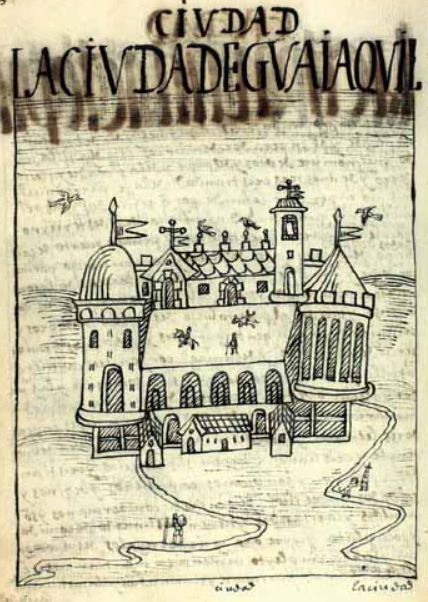 CIVDAD
LACIVDADEGVAIAQVIL
ciudad
laciudad